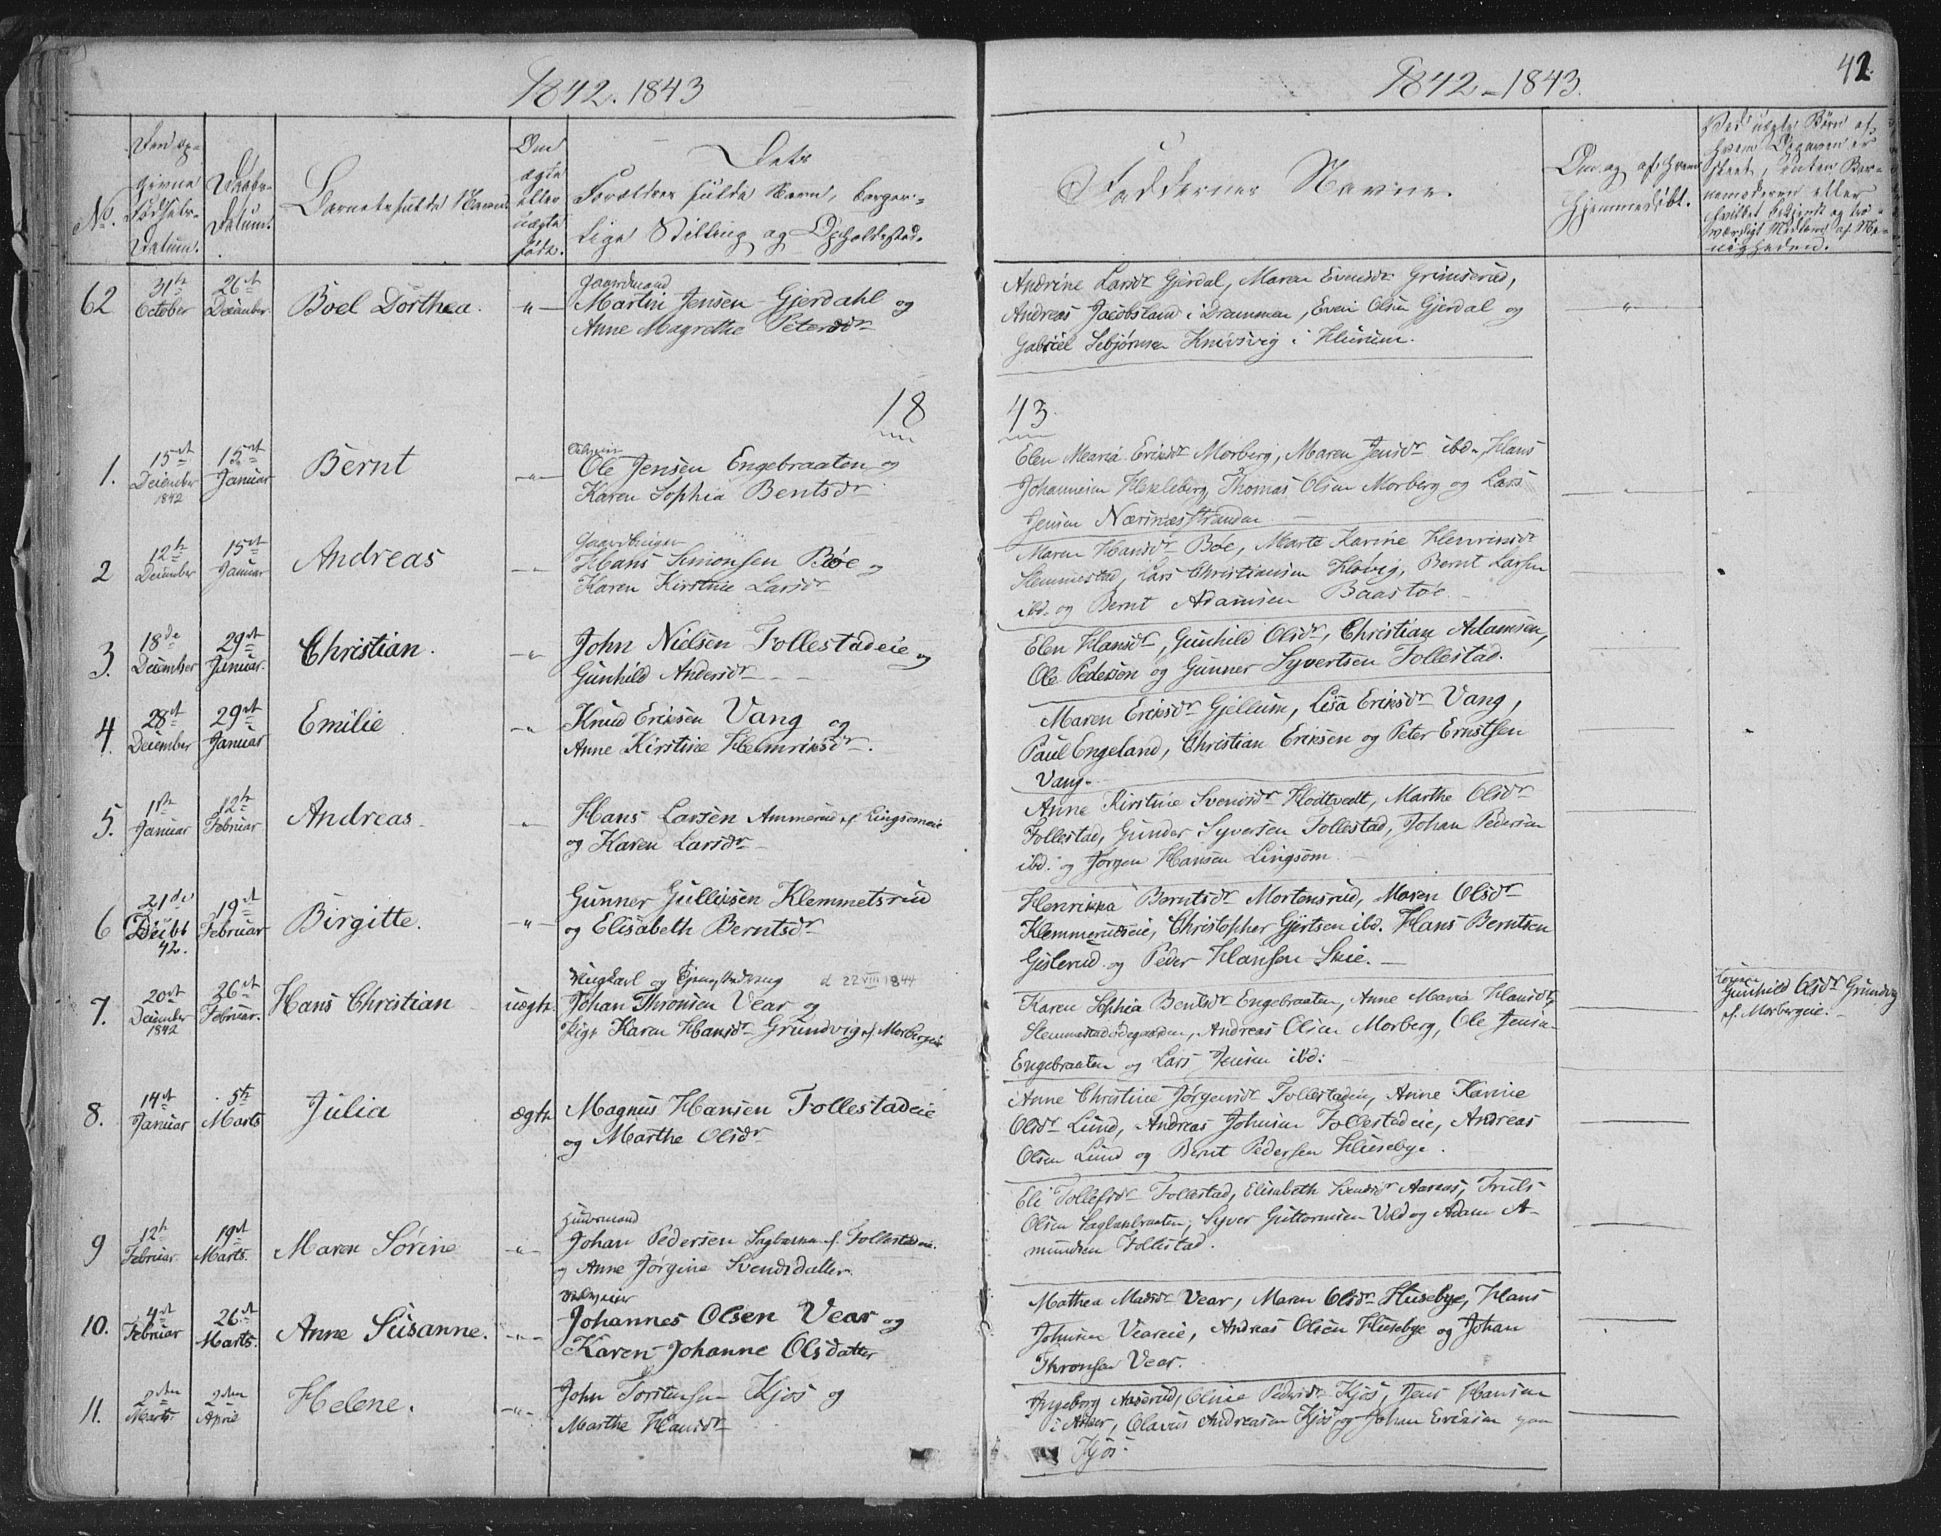 1842. 1843
1842-1843.
42.
No.
Den opgivne Fødsels-Datum.
Daabs-Datum.
Barnets fulde Navn
Om ægte eller uægte født.
Dets Forældres fulde Navn, borgerlige Stilling og Opholdssted.
Faddernes Navne.
Om og af hvem hjemmedøbt.
62
31te October
26de December
Boel Dorthea.
"
Gaardmand
Martin Jensen Gjerdahl og
Anne Magrethe Petersdr
Andrine Larsdr Gjerdal, Maren Evensdr Grimsrud,
Andreas Jacobsland i Drammen, Even Olsen Gjerdal og
Gabriel Sebjørnsen Knivsvig i Hurum.
1843.
1.
15de December 1842
15de Januar
Bernt
"
Ole Jensen Engebraaten og
Karen Sophia Bentsdr
Elen Maria Eriksdr Morberg, Maren Jensdr ibd., Hans
Johannesen Hekleberg, Thomas Olsen Morberg og Lars
Jensen Nærsnæsstranden
2
12te December
15de Januar
Andreas
"
Gaardbruger
Hans Simonsen Bøe og
Karen Kirstine Larsdr
Maren Hansdr Bøe, Marte Karine Henriksdr
Slemmestad, Lars Christiansen Høvig, Bernt Larsen
ibd. og Bernt Adamsen Baastøe.
3.
18de December
29de Januar.
Christian.
"
John Nielsen Follestadeie og
Gunhild Andersdr
Elen Hansdr, Gunhild Olsdr, Christian Adamsen,
Ole Pedersen og Gunner Syvertsen Follestad.
4.
28de December
29de Januar
Emilie
"
Knud Eriksen Vang og
Anne Kirstine Helmriksdr.
Maren Eriksdr Gjellum, Lisa Eriksdr Vang,
Paul Engeland, Christian Eriksen og Peter Ernstsen
Vang.
5.
1ste Januar
12te Februar
Andreas
"
Hans Larsen Ammerud af Lingsomeie
og Karen Larsdr
Anne Kirstine Svendsdr Hodtvedt, Marthe Olsdr
Follestad, Gunder Syversen Follestad, Johan Pedersen
ibd. og Jørgen Hansen Lingsom.
6
21de Decbr 42.
19de Februar
Birgitte.
"
Gunner Gulliksen Klemmetsrud
og Elisabeth Berntsdr
Henrikka Berntsdr Mortensrud, Maren Olsdr
Klemmerudseie, Christopher Gjertsen ibd. Hans Berntsen
Gislerud og Peder Hansen Skie.
7.
20de December 1842
26de Februar.
Hans Christian
uægte
Ungkarl og d 22 VIII 1844
Johan Thronsen Vear og
Pige Karen Hansdr Grundvig af Morbergeie
Karen Sophia Bentsdr Engebraaten, Anne Maria Hansdr
Slemmestadødegaarden, Andreas Olsen Morberg, Ole Jensen
Engebraaten og Lars Jensen ibd.
Gunhild Olsdr Grundvig
af Morbergeie.
8.
14de Januar
5te Marts
Julia
ægte
Magnus Hansen Follestadeie
og Marthe Olsdr
Anne Christine Jørgensdr Follestadeie, Anne Karine
Olsdr Lund, Andreas Johnsen Follestadeie, Andreas
Olsen Lund og Bernt Pedersen Husebye.
9
12te Februar
19de Marts.
Maren Sørine
"
Huusmand
Johan Pedersen Sagbakken af Follestadeie.
og Anne Jørgine Svendsdatter
Eli Tollefsdr Follestad, Elisabeth Svendsdr Aaraas, Truls
Olsen Saglabraaten, Syver Guttormsen Uld og Adam A-
mundsen Follestad.
10.
4de Februar
26de Marts.
Anne Susanne.
"
Johannes Olsen Vear og
Karen Johanne Olsdatter
Mathea Madsdr Vear, Maren Olsdr Husebye, Hans
Johnsen Veareie, Andreas Olsen Husebye og Johan
Thronsen Vear.
11.
2den Marts.
2den April
Helene.
"
John Torstensen Kjøs og
Marthe Hansdr
Ingeborg Aaserud, Oline Pedersdr Kjøs, Jens Hansen
i Asker, Olavus Andreasen Kjøs og Johan Eriksen
Kjøs.